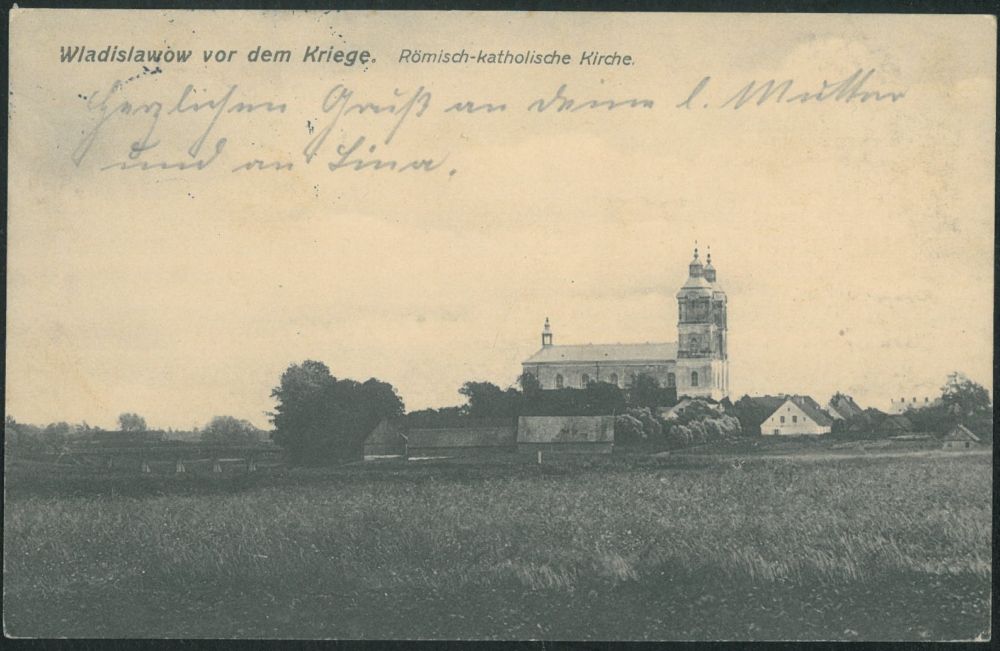 Wladislawow vor dem Kriege. Römisch-katholische Kirche.
Herzlichen Gruß an deine l. Mutter
und an Lina.